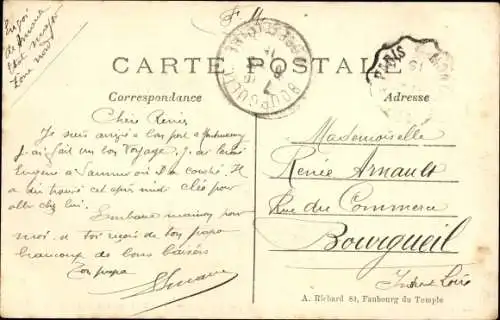 F. M.
Envoi
de
Etat major
CARTE POSTALE
Correspondance
Adresse
BOURGUEIL
PARIS
Chère Renée
Je suis arrivé à bon port à
J. ai fait un bon Voyage. J. ai
Eugène à Saumur où il a couché. Il
a du trouvé cet après midi cléo pour
aller chez lui.
Embrasse maman pour
moi. a toi reçois de ton papa
beaucoup de bons baisers
Ton papa
Mademoiselle
Renée Arnault
Rue du Commerce
Bourgueil
Indre et Loire
A. Richard 84, Faubourg du Temple